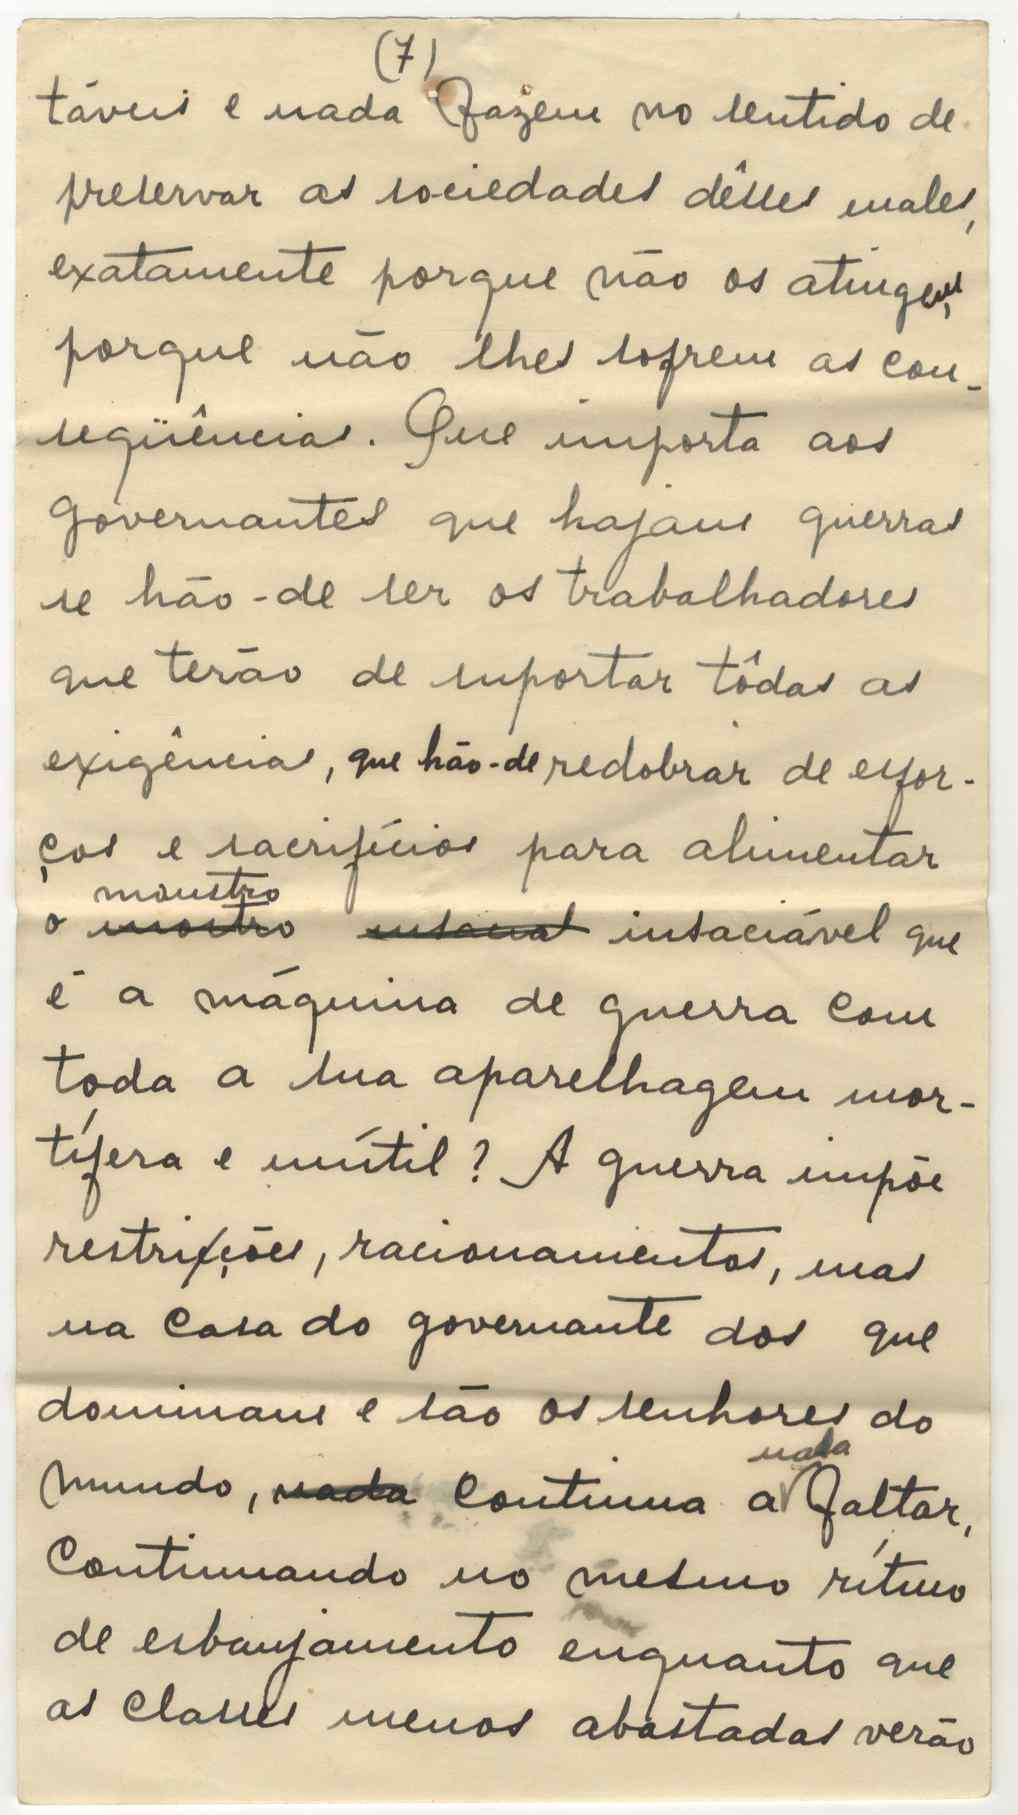 (7)
táveis e nada fazem no sentido de
preservar as sociedades dêsses males,
exatamente porque não os atingem,
porque não lhes sofrem as con-
seqüências. Que importa aos
governantes que hajam guerras
se hão-de ser os trabalhadores
que terão de suportar tôdas as
exigências, que hão-de redobrar de esfor-
ços e sacrifícios para alimentar
monstro
o mostro insaciável que
é a máquina de guerra com
toda a sua aparelhagem mor-
tífera e inútil? A guerra impõe
restrições, racionamentos, mas
na casa do governante dos que
dominam e são os senhores do
nada
mundo, nada continua a faltar,
continuando no mesmo rítmo
de esbanjamento enquanto que
as classes menos abastadas verão